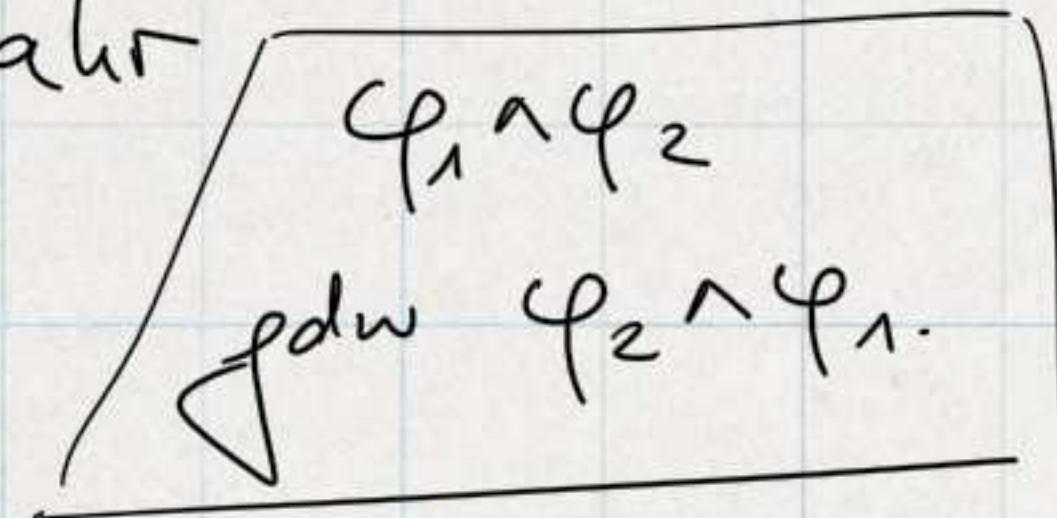 ahr
φ₁ ∧ φ₂
gdw φ₂ ∧ φ₁.